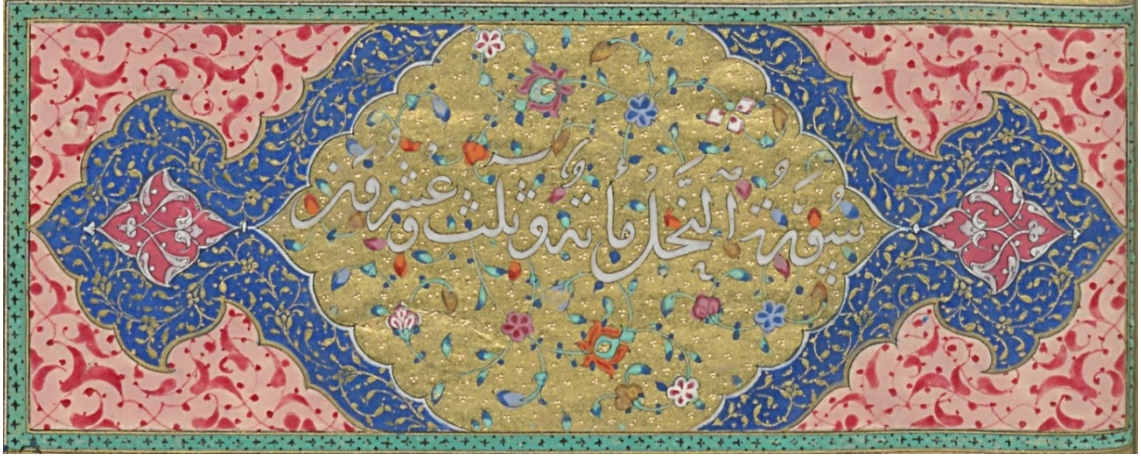 سُورَةُ النَّحل مأية وثلث وعشرون